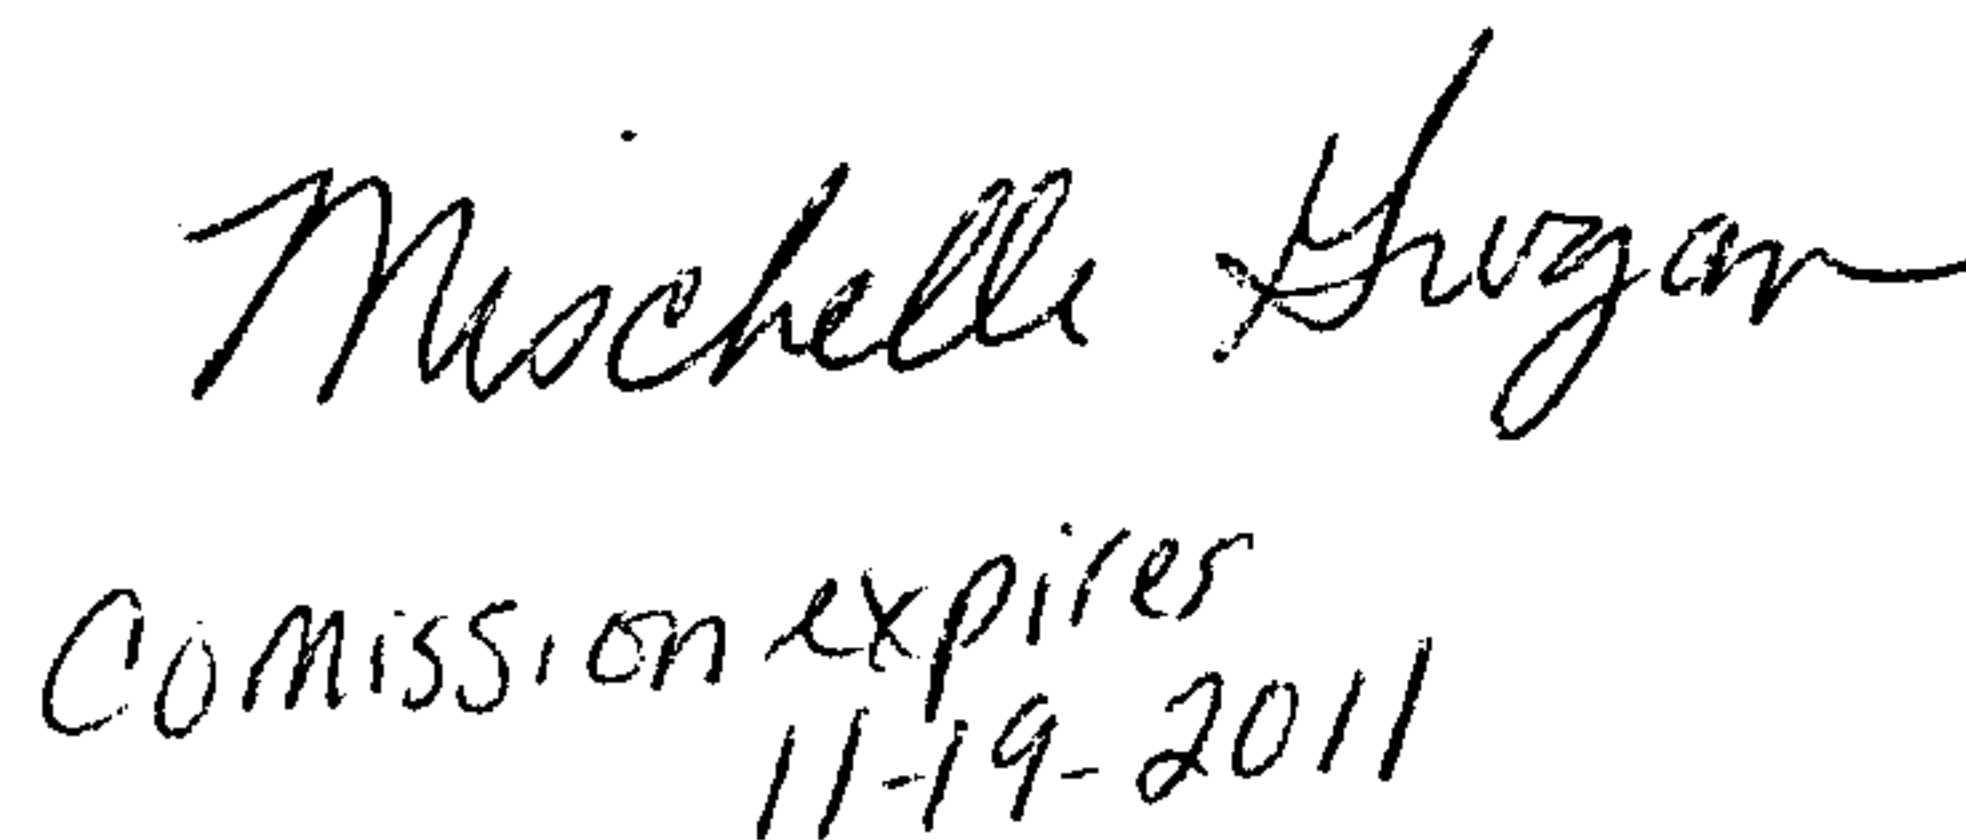 Mischelle Grogan
Comission expires
11-19-2011